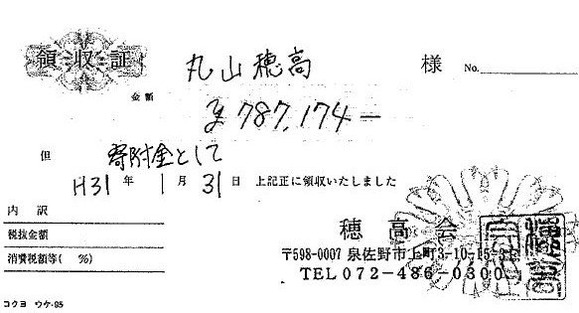 領収証 丸山穂高 様 No.
金額 ¥787,174—
但 寄附金として
H31年1月31日 上記正に領収いたしました
内訳
税抜金額
消費税額等( %)
穂高会
〒598-0007 泉佐野市上町3-10-15-31
TEL072-486-0300
コクヨ ウケ-95